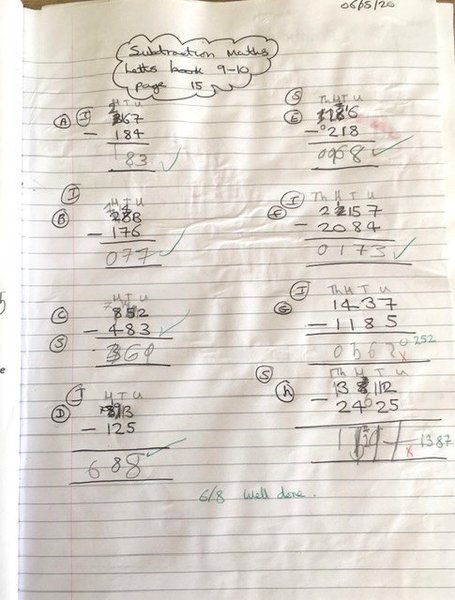 06/5/20
Subtraction Maths
Letts book 9-10
page 15
A I H T U
367
- 184
183
I H T U
B
- 176
077
H T U
C 852
- 483
S 369
I H T U
D 813
- 125
688
S Th H T U
E
- 218
I Th H T U
F 2257
- 2084
0173
I Th H T U
G 1437
- 1185
0252
S Th H T U
h
- 2425
1387
6/8 Well done.